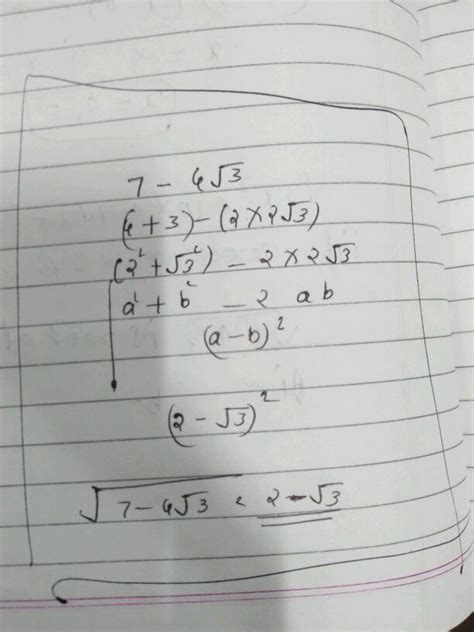 7 - 4√3
(4+3)-(2×2√3)
(2²+√3²) - 2×2√3
a² + b² - 2 ab
(a-b)²
(2-√3)²
√7-4√3 = 2-√3